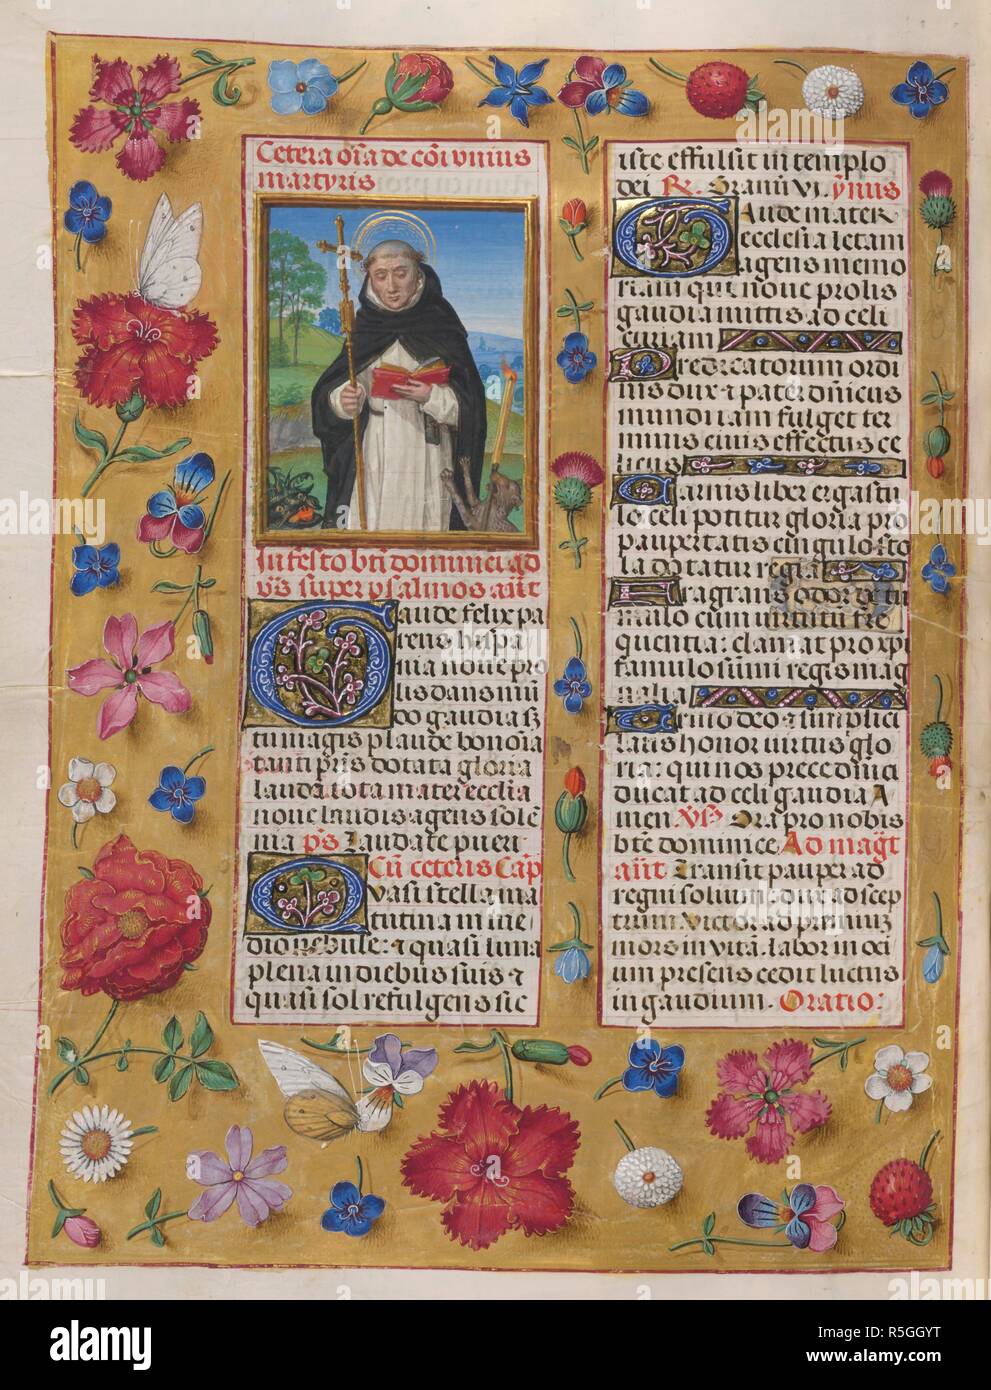 Cetera oĩa de cõi vnius
martyris
In festo bti dominici ad
vs̃ super psalmos añt
Gaude felix pa
rens hispa
nia noue pro
lis dans mũ
do gaudia sʒ
tu magis plaude bononia
tanti pr̃is dotata gloria
lauda tota mater ecclia
noue laudis agens solẽ
nia p̃s Laudate pueri
Cũ ceteris Cap̃
Quasi stella ma
tutina in me
dio nebule: ⁊ quasi luna
plena in diebus suis ⁊
quasi sol refulgens sic
iste effulsit in templo
dei R. Granũ vi. ymus
Gaude mater
ecclesia letam
agens memo
riam que noue prolis
gaudia mittis ad celi
curiam
Predicatorum ordi
nis dux ⁊ pater dñicus
mundi iam fulget ter
minis ciuis effectus ce
licus
Carnis liber ergastu
lo celi potitur gloria pro
paupertatis cingulo sto
la dotatur regia
Fragrans odor dũ tu
malo cum virtutũ fre
quentia: clamat pro xpi
famulo sũmi regis mag
nalia
Trino deo ⁊ simplici
laus honor virtus glo
ria: qui nos prece dñici
ducat ad celi gaudia A
men Vs̃ Ora pro nobis
bte dominice Ad mag̃t
añt Transit pauper ad
regni solium: dux ad scep
trum victor ad premiũ
mors in vitã. labor in oci
um presens cedit luctus
in gaudium. Oratio:
alamy
alamy
Image ID: R5GGYT
www.alamy.com